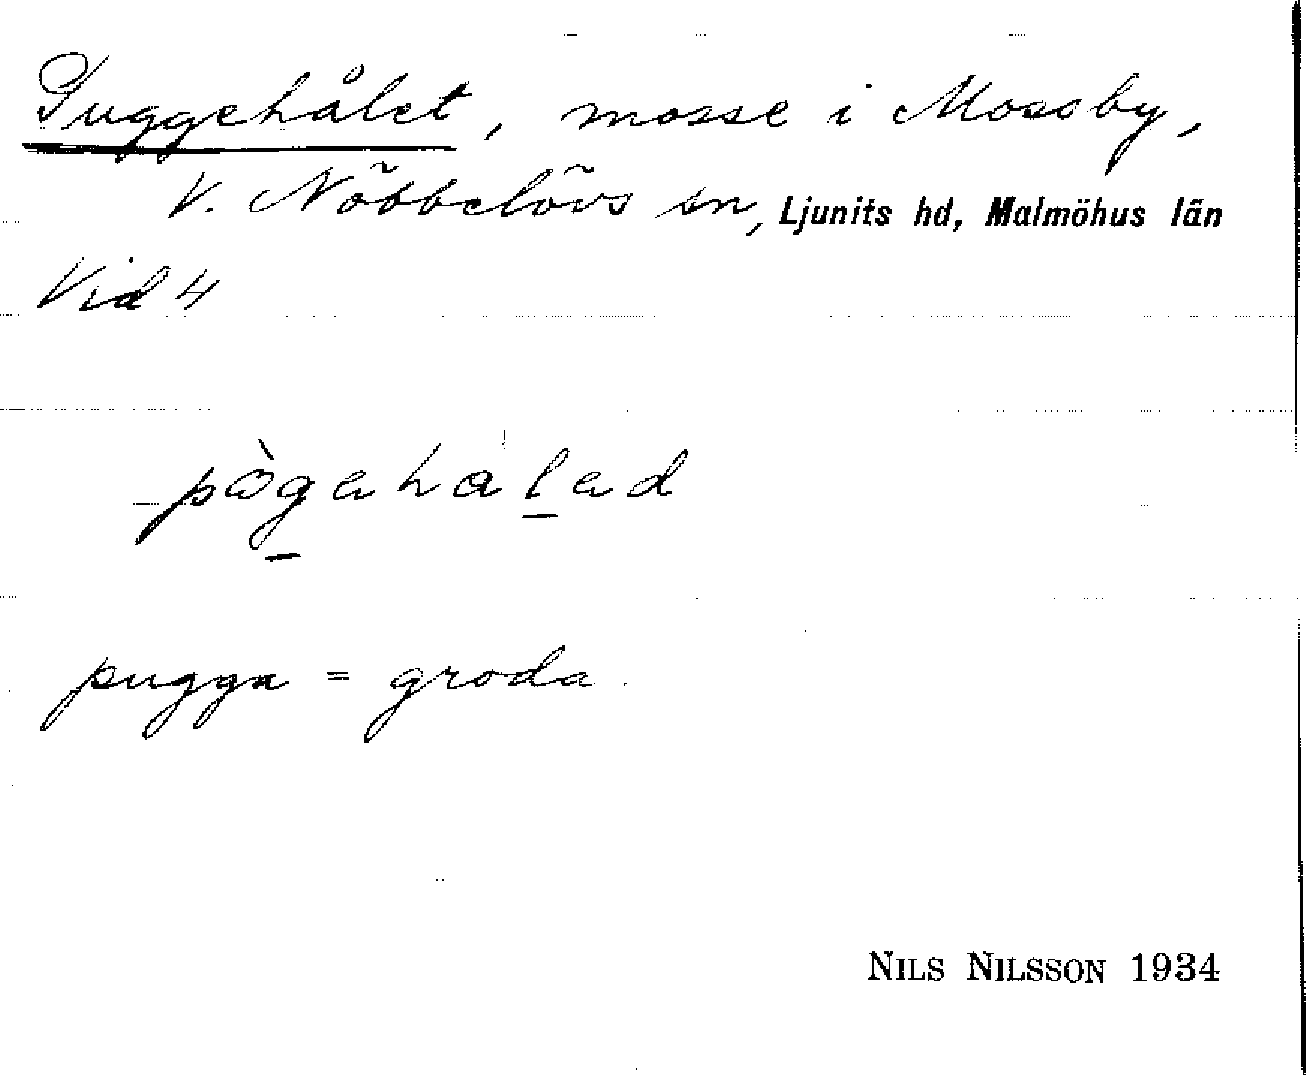 Puggehålet, mosse i Mossby,
V. Nöbbelövs sn, Ljunits hd, Malmöhus län
Vid 4
pugga = groda.
NILS NILSSON 1934